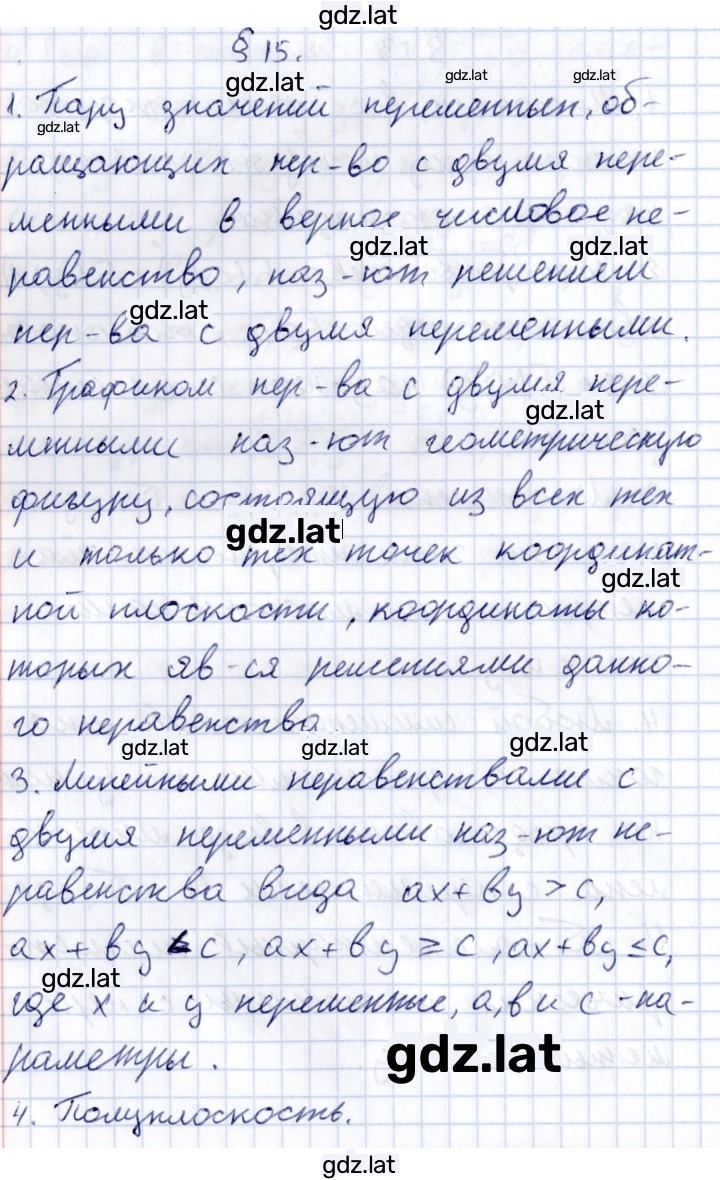 gdz.lat
§ 15.
gdz.lat gdz.lat gdz.lat
1. Пару значений переменных, об-
gdz.lat
ращающих нер-во с двумя пере-
менными в верное числовое не-
gdz.lat gdz.lat
равенство, наз-ют решением
gdz.lat
нер-ва с двумя переменными.
2. Графиком нер-ва с двумя пере-
gdz.lat
менными наз-ют геометрическую
фигуру, состоящую из всех тех
gdz.lat
и только тех точек координат-
gdz.lat
ной плоскости, координаты ко-
торых яв-ся решениями данно-
го неравенства.
gdz.lat gdz.lat gdz.lat
3. Линейными неравенствами с
двумя переменными наз-ют не-
равенства вида ax+by>c,
ax+by<c, ax+by≥c, ax+by≤c,
gdz.lat
где x и y переменные, a, b и c - па-
раметры.
gdz.lat
4. Полуплоскость.
gdz.lat